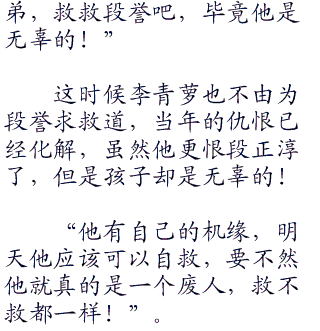 弟，救救段誉吧，毕竟他是
无辜的！”
这时候李青萝也不由为
段誉求救道，当年的仇恨已
经化解，虽然他更恨段正淳
了，但是孩子却是无辜的！
“他有自己的机缘，明
天他应该可以自救，要不然
他就真的是一个废人，救不
救都一样！”。